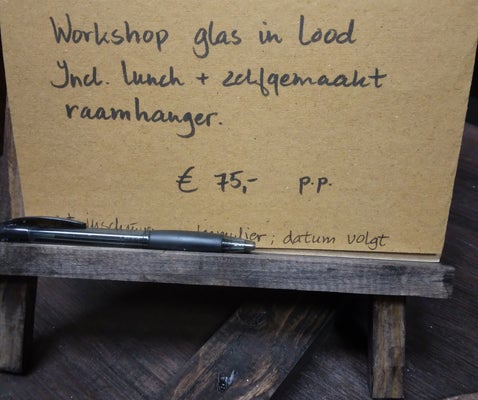 Workshop glas in Lood
Incl. lunch + zelfgemaakt
raamhanger.
€ 75,- p.p.
; datum volgt